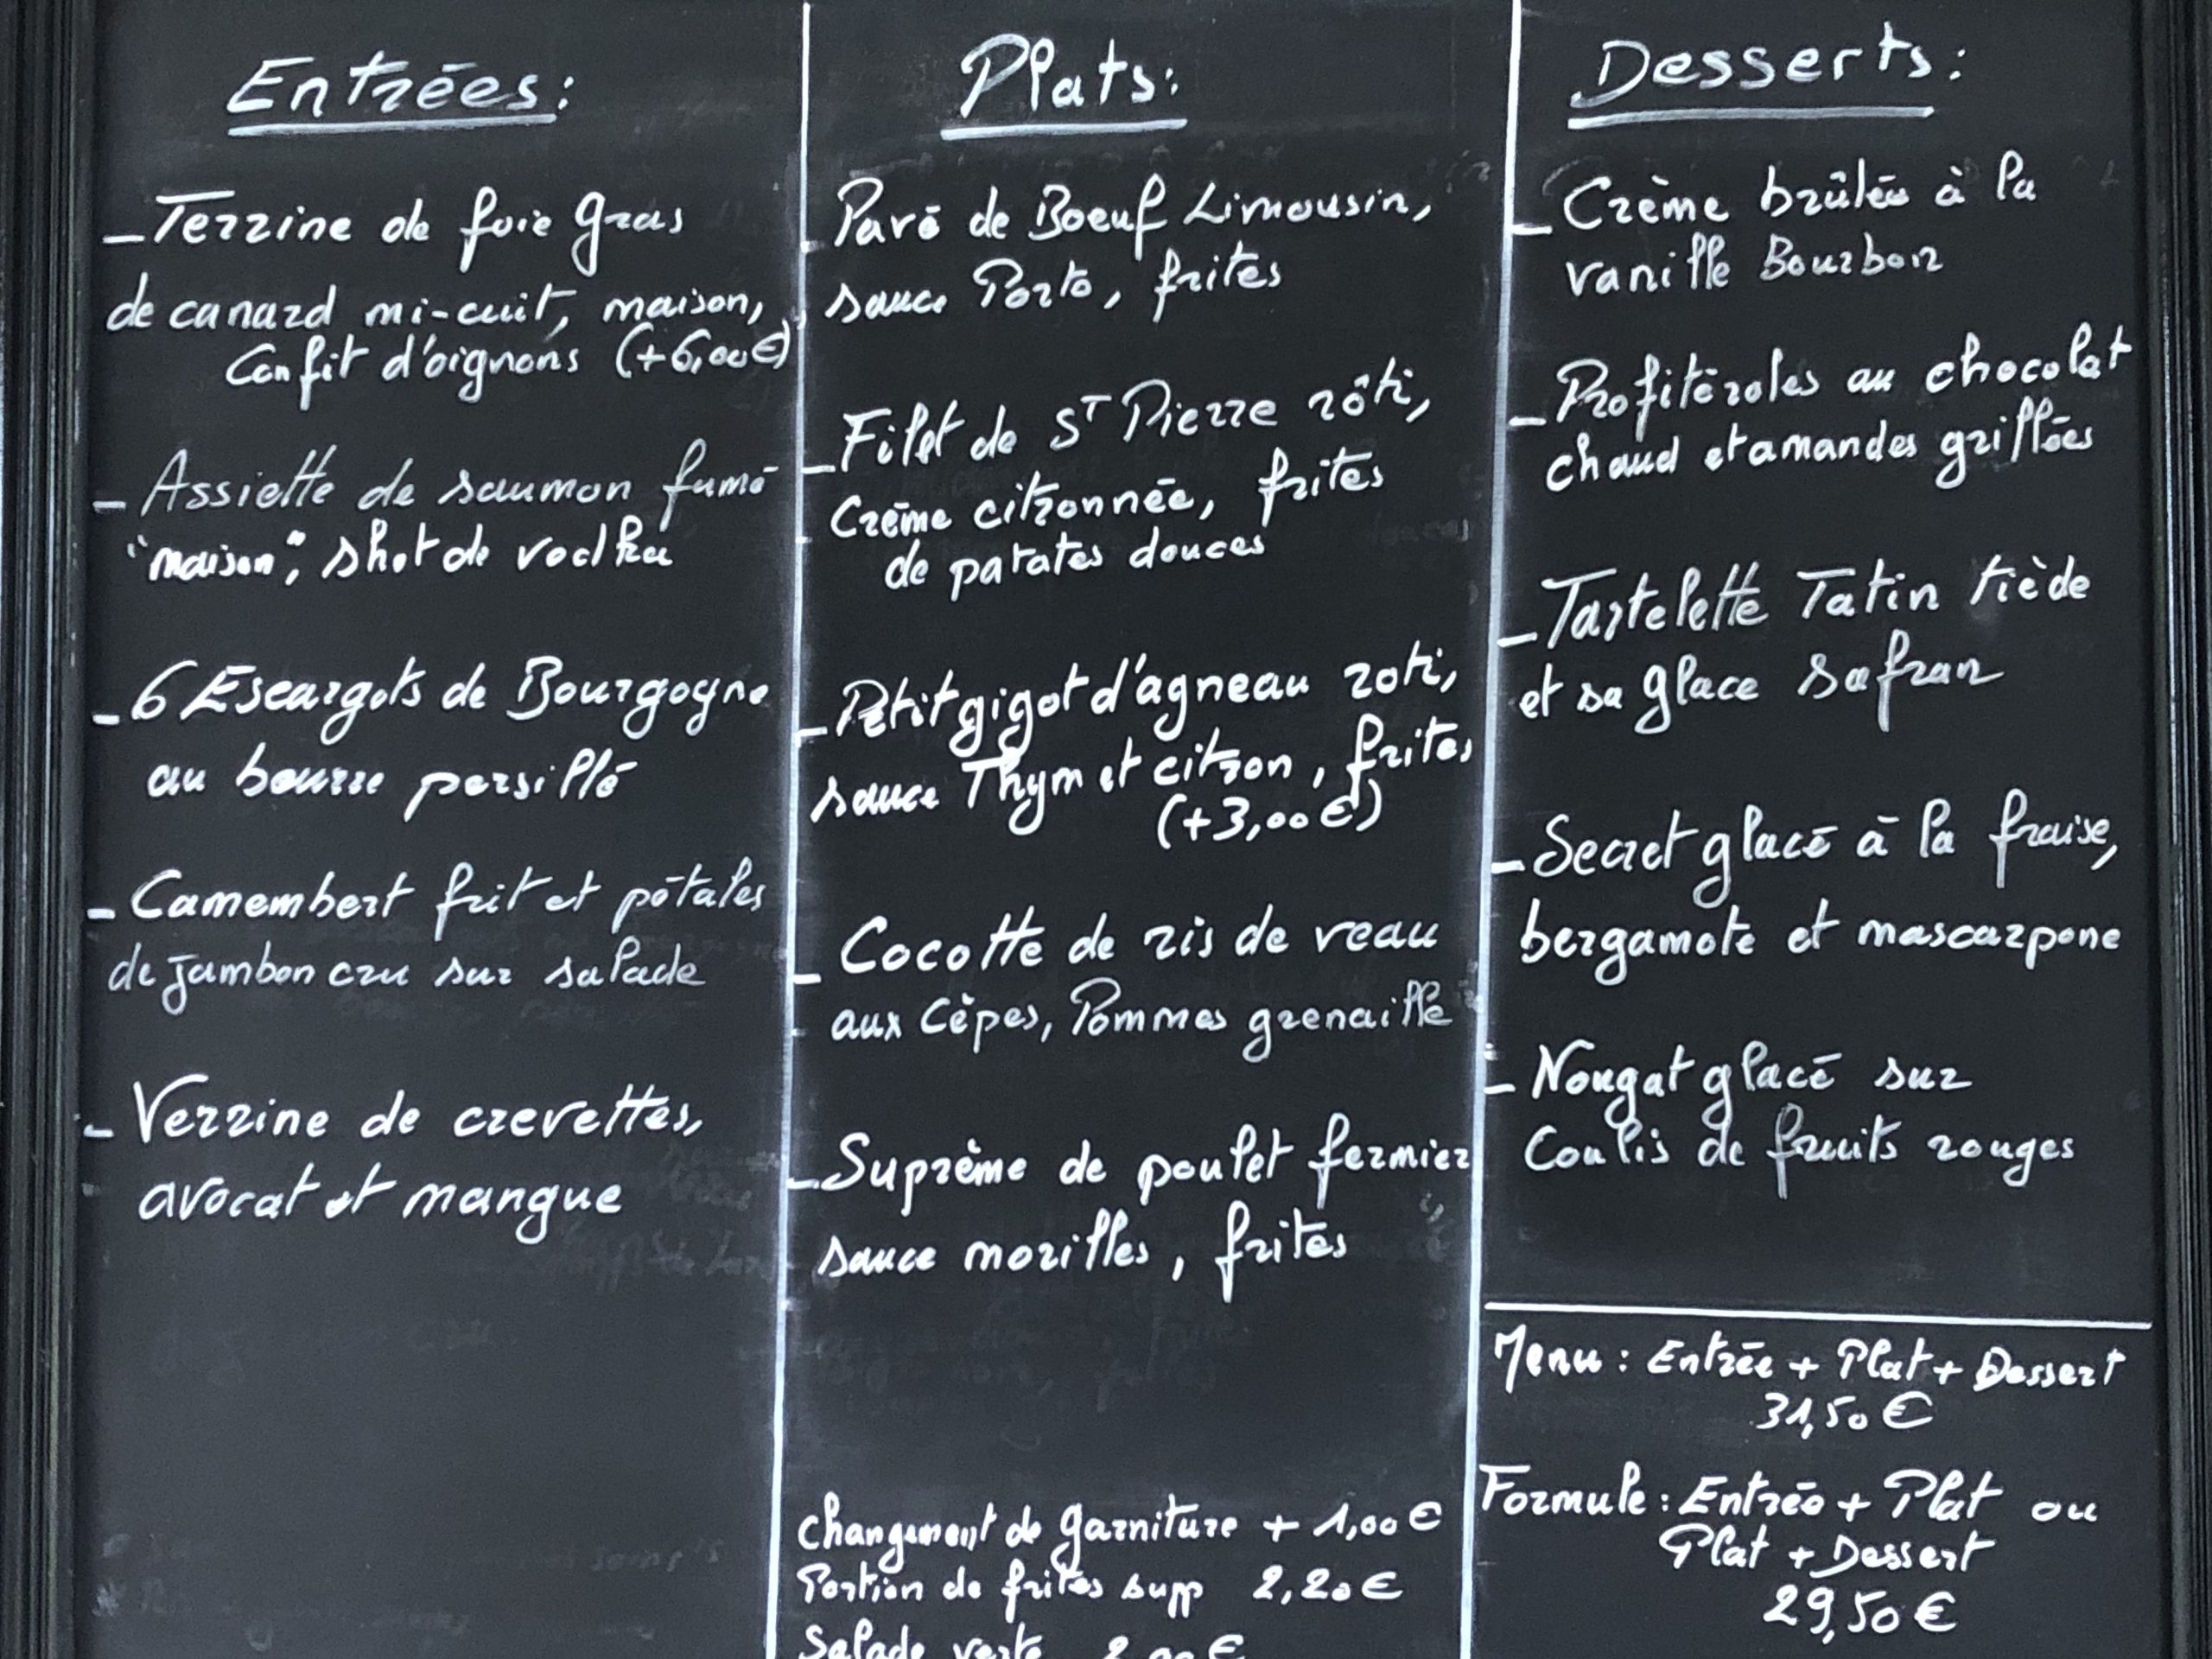 Entrées :
– Terrine de foie gras
de canard mi-cuit, maison,
Confit d'oignons (+6,00€)
– Assiette de saumon fumé
"maison", shot de vodka
– 6 Escargots de Bourgogne
au beurre persillé
– Camembert frit et pétales
de jambon cru sur salade
– Verrine de crevettes,
avocat et mangue
Plats :
Pavé de Boeuf Limousin,
sauce Porto, frites
– Filet de St Pierre rôti,
Crème citronnée, frites
de patates douces
– Petit gigot d'agneau roti,
sauce Thym et citron, frites
(+3,00€)
– Cocotte de ris de veau
aux Cèpes, Pommes grenaille
– Suprème de poulet fermier
sauce morilles, frites
Changement de garniture + 1,00€
Portion de frites supp 2,20€
Salade verte
Desserts :
– Crème brûlée à la
vanille Bourbon
– Profitéroles au chocolat
chaud et amandes grillées
– Tartelette Tatin tiède
et sa glace safran
– Secret glacé à la fraise,
bergamote et mascarpone
– Nougat glacé sur
Coulis de fruits rouges
Menu : Entrée + Plat + Dessert
31,50€
Formule : Entrée + Plat ou
Plat + Dessert
29,50€